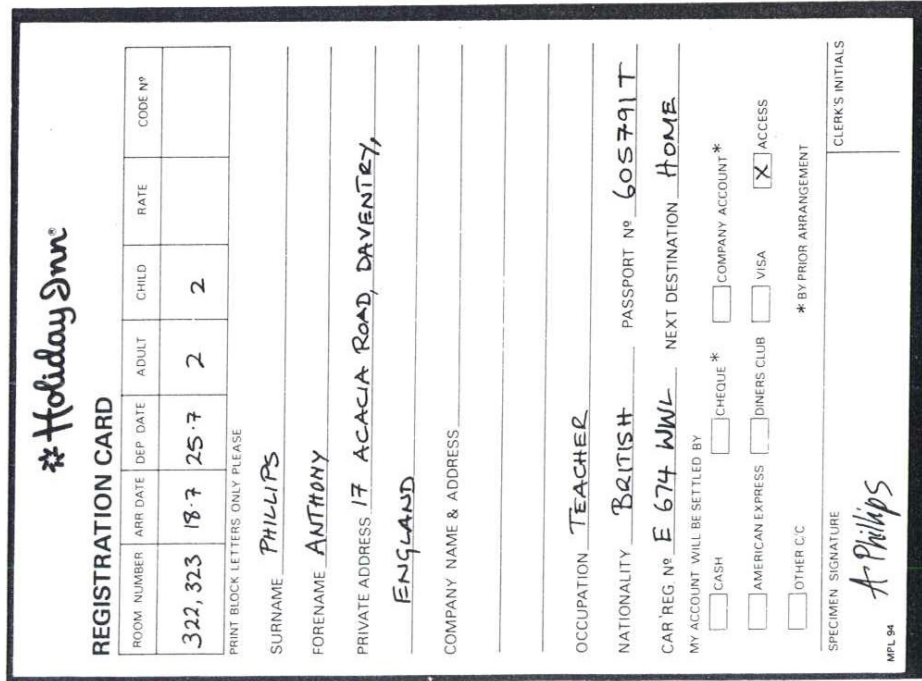 Holiday Inn®
REGISTRATION CARD
ROOM NUMBER ARR DATE DEP DATE ADULT CHILD RATE CODE Nº
322, 323 18·7 25·7 2 2
PRINT BLOCK LETTERS ONLY PLEASE
SURNAME PHILIPS
FORENAME ANTHONY
PRIVATE ADDRESS 17 ACACIA ROAD, DAVENTRY,
ENGLAND
COMPANY NAME & ADDRESS
OCCUPATION TEACHER
NATIONALITY BRITISH PASSPORT Nº 605791 T
CAR REG. Nº E 674 WWL NEXT DESTINATION HOME
MY ACCOUNT WILL BE SETTLED BY
CASH CHEQUE * COMPANY ACCOUNT *
AMERICAN EXPRESS DINERS CLUB VISA X ACCESS
OTHER C/C * BY PRIOR ARRANGEMENT
SPECIMEN SIGNATURE CLERK'S INITIALS
A Phillips
MPL 94